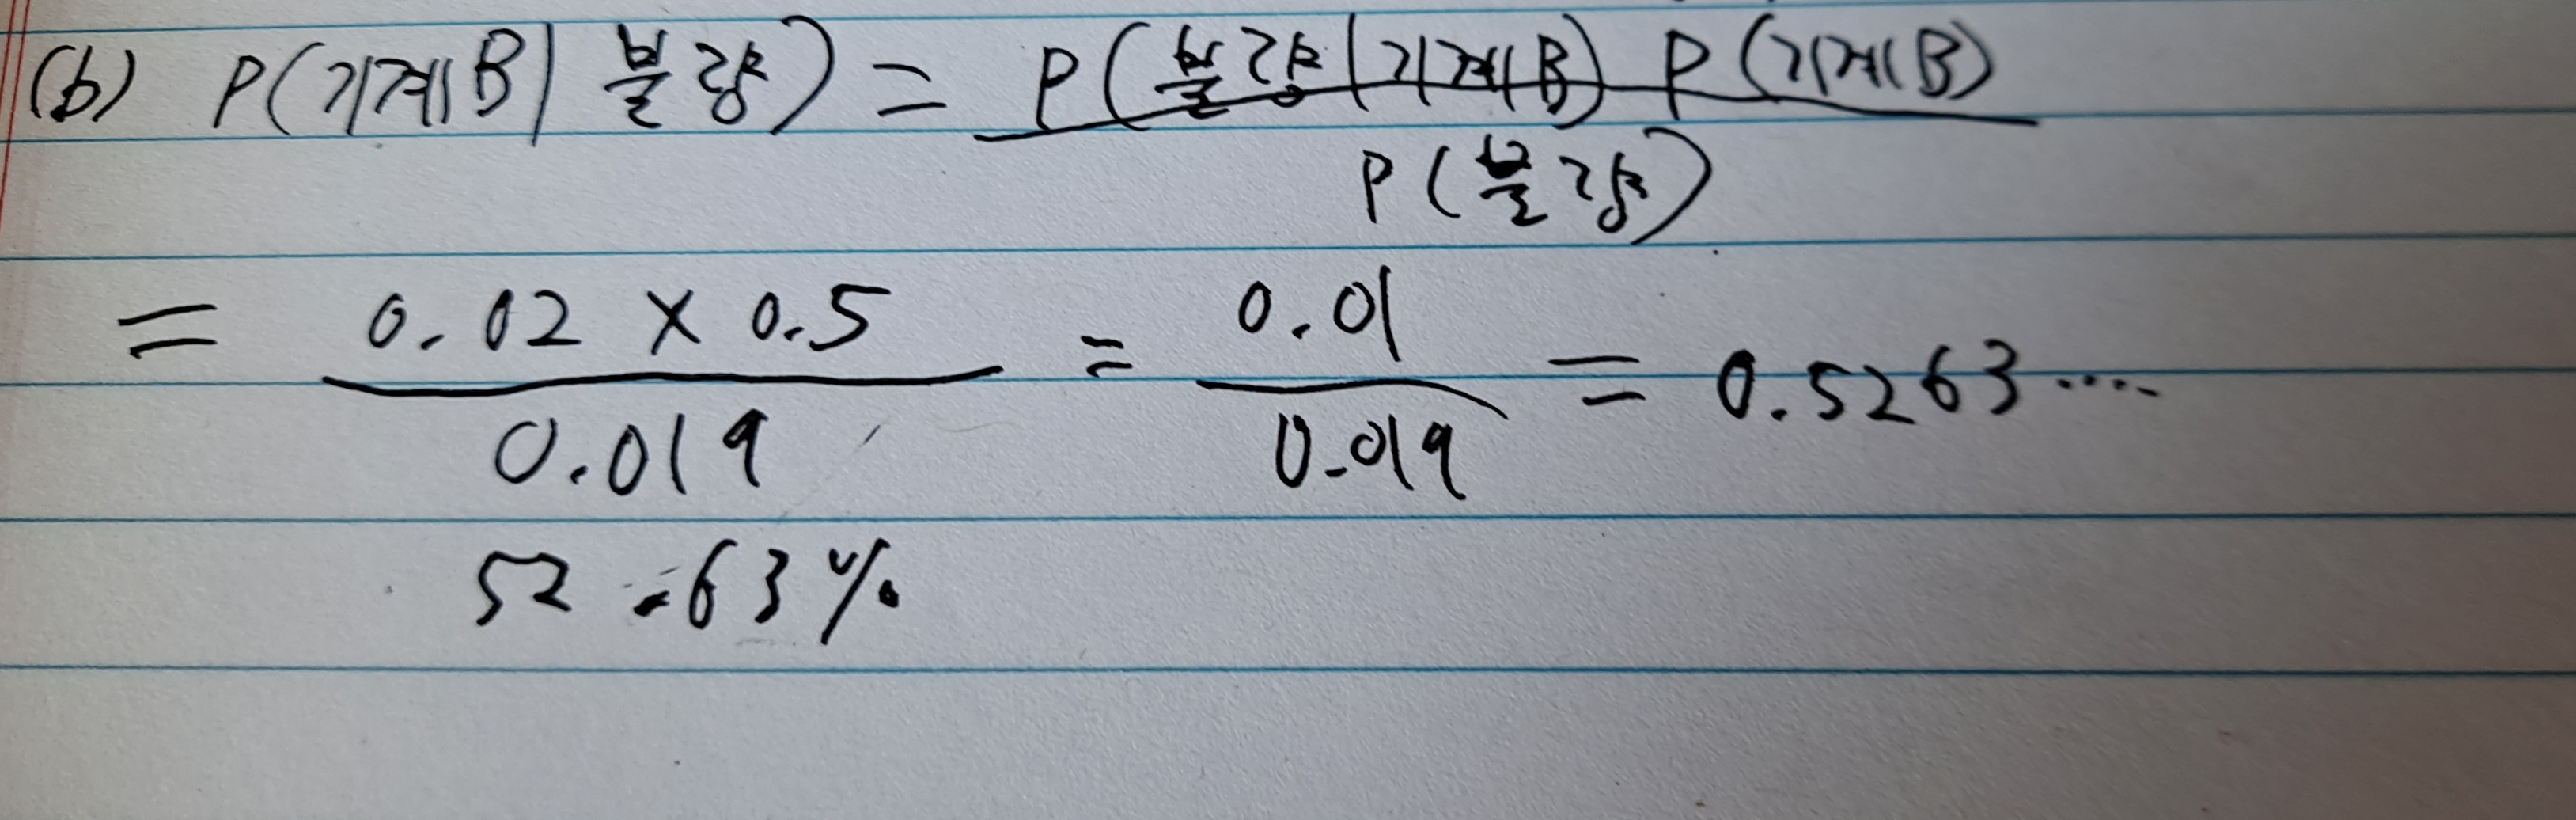 (b) P(기계B| 불량) = P(불량|기계B) P(기계B)
P(불량)
= 0.02 × 0.5 = 0.01 = 0.5263....
0.019 0.019
52.63%